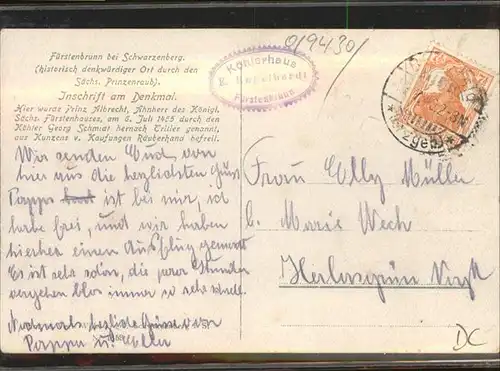 Fürstenbrunn bei Schwarzenberg.
(historisch denkwürdiger Ort durch den
Sächs. Prinzenraub).
Inschrift am Denkmal.
Hier wurde Prinz Albrecht, Ahnherr des Königl.
Sächs. Fürstenhauses, am 8. Juli 1455 durch den
Köhler Georg Schmidt hernach Triller genannt,
aus Kunzens v. Kaufungen Räuberhand befreit.
Köhlerhaus
Fürstenbrunn
019430/
Wir senden Euch, von
hier aus die herzlichsten Grüße
Pappa ist bei mir, ich
habe frei, und wir haben
hierher einen Ausflug gemacht
Es ist sehr schön, die paar Stunden
vergehen blos immer so sehr schnell.
Nochmals herzliche Grüsse von
Pappa u.
Frau Elly Müller
b. Marie Wech
DC